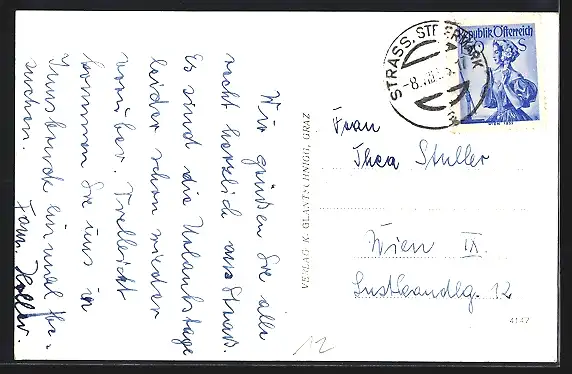 Wir grüßen Sie alle
recht herzlich aus Straß.
Es sind die Urlaubstage
leider schon wieder
vorüber. Vielleicht
kommen Sie uns in
Innsbruck einmal be-
suchen.
Fam. Holler.
VERLAG K. GLANTSCHNIGG, GRAZ
STRASS, STEIERMARK
Republik Österreich
S
Frau
Thea Stuller
Wien IX.
12
4142
12